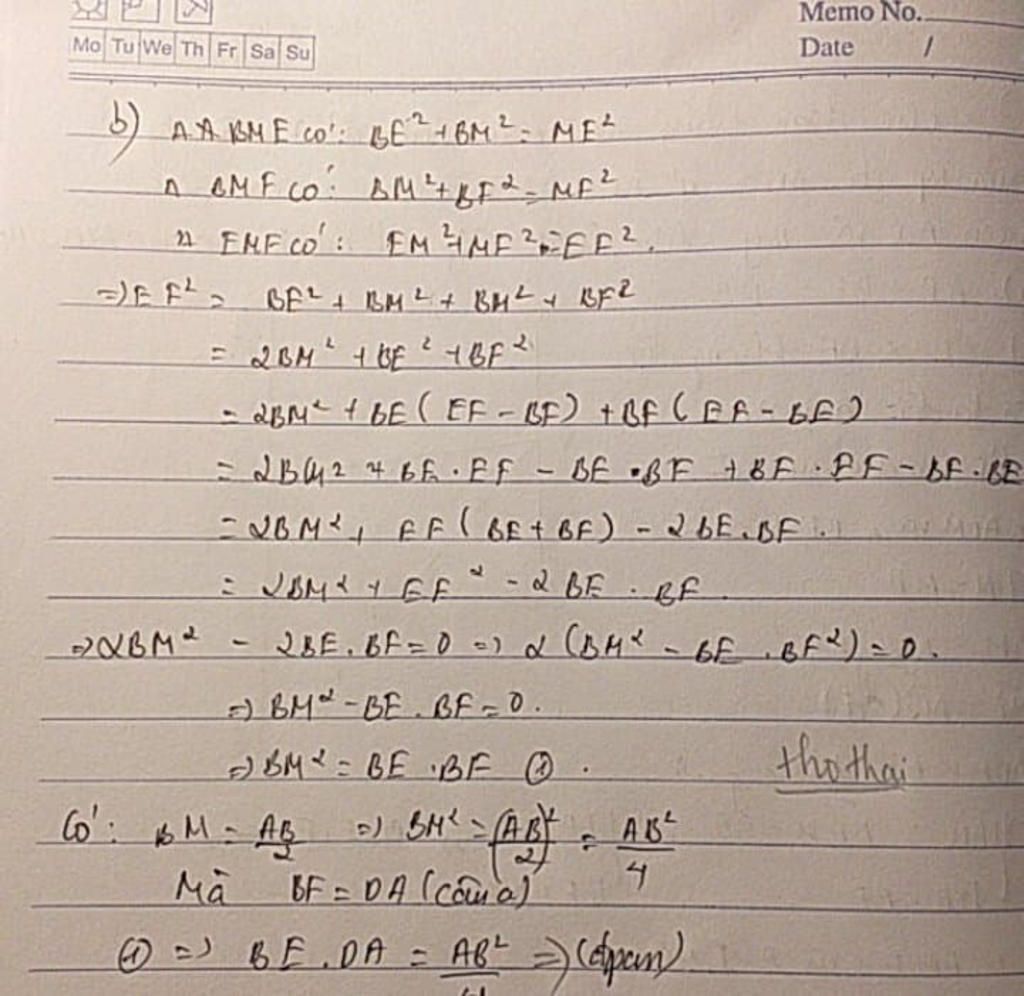 Memo No.
Mo Tu We Th Fr Sa Su
Date /
b) ΔΔ BME có: BE² + BM² = ME²
Δ BMF có: BM² + BF² = MF²
Δ EMF có: EM² + MF² = EF².
=> EF² = BE² + BM² + BM² + BF²
= 2BM² + BE² + BF²
= 2BM² + BE(EF - BF) + BF(EF - BE)
= 2BM² + BE . EF - BE . BF + BF . EF - BF . BE
= 2BM² + EF(BE + BF) - 2BE . BF.
= 2BM² + EF² - 2BE . BF
=> 2BM² - 2BE . BF = 0 => 2(BM² - BE . BF²) = 0.
=> BM² - BE . BF = 0.
=> BM² = BE . BF ① .
thơ thai
Có: BM = AB/2 => BM² = (AB/2)² = AB²/4
Mà BF = DA (câu a)
① => BE . DA = AB²/4 => (đpcm)